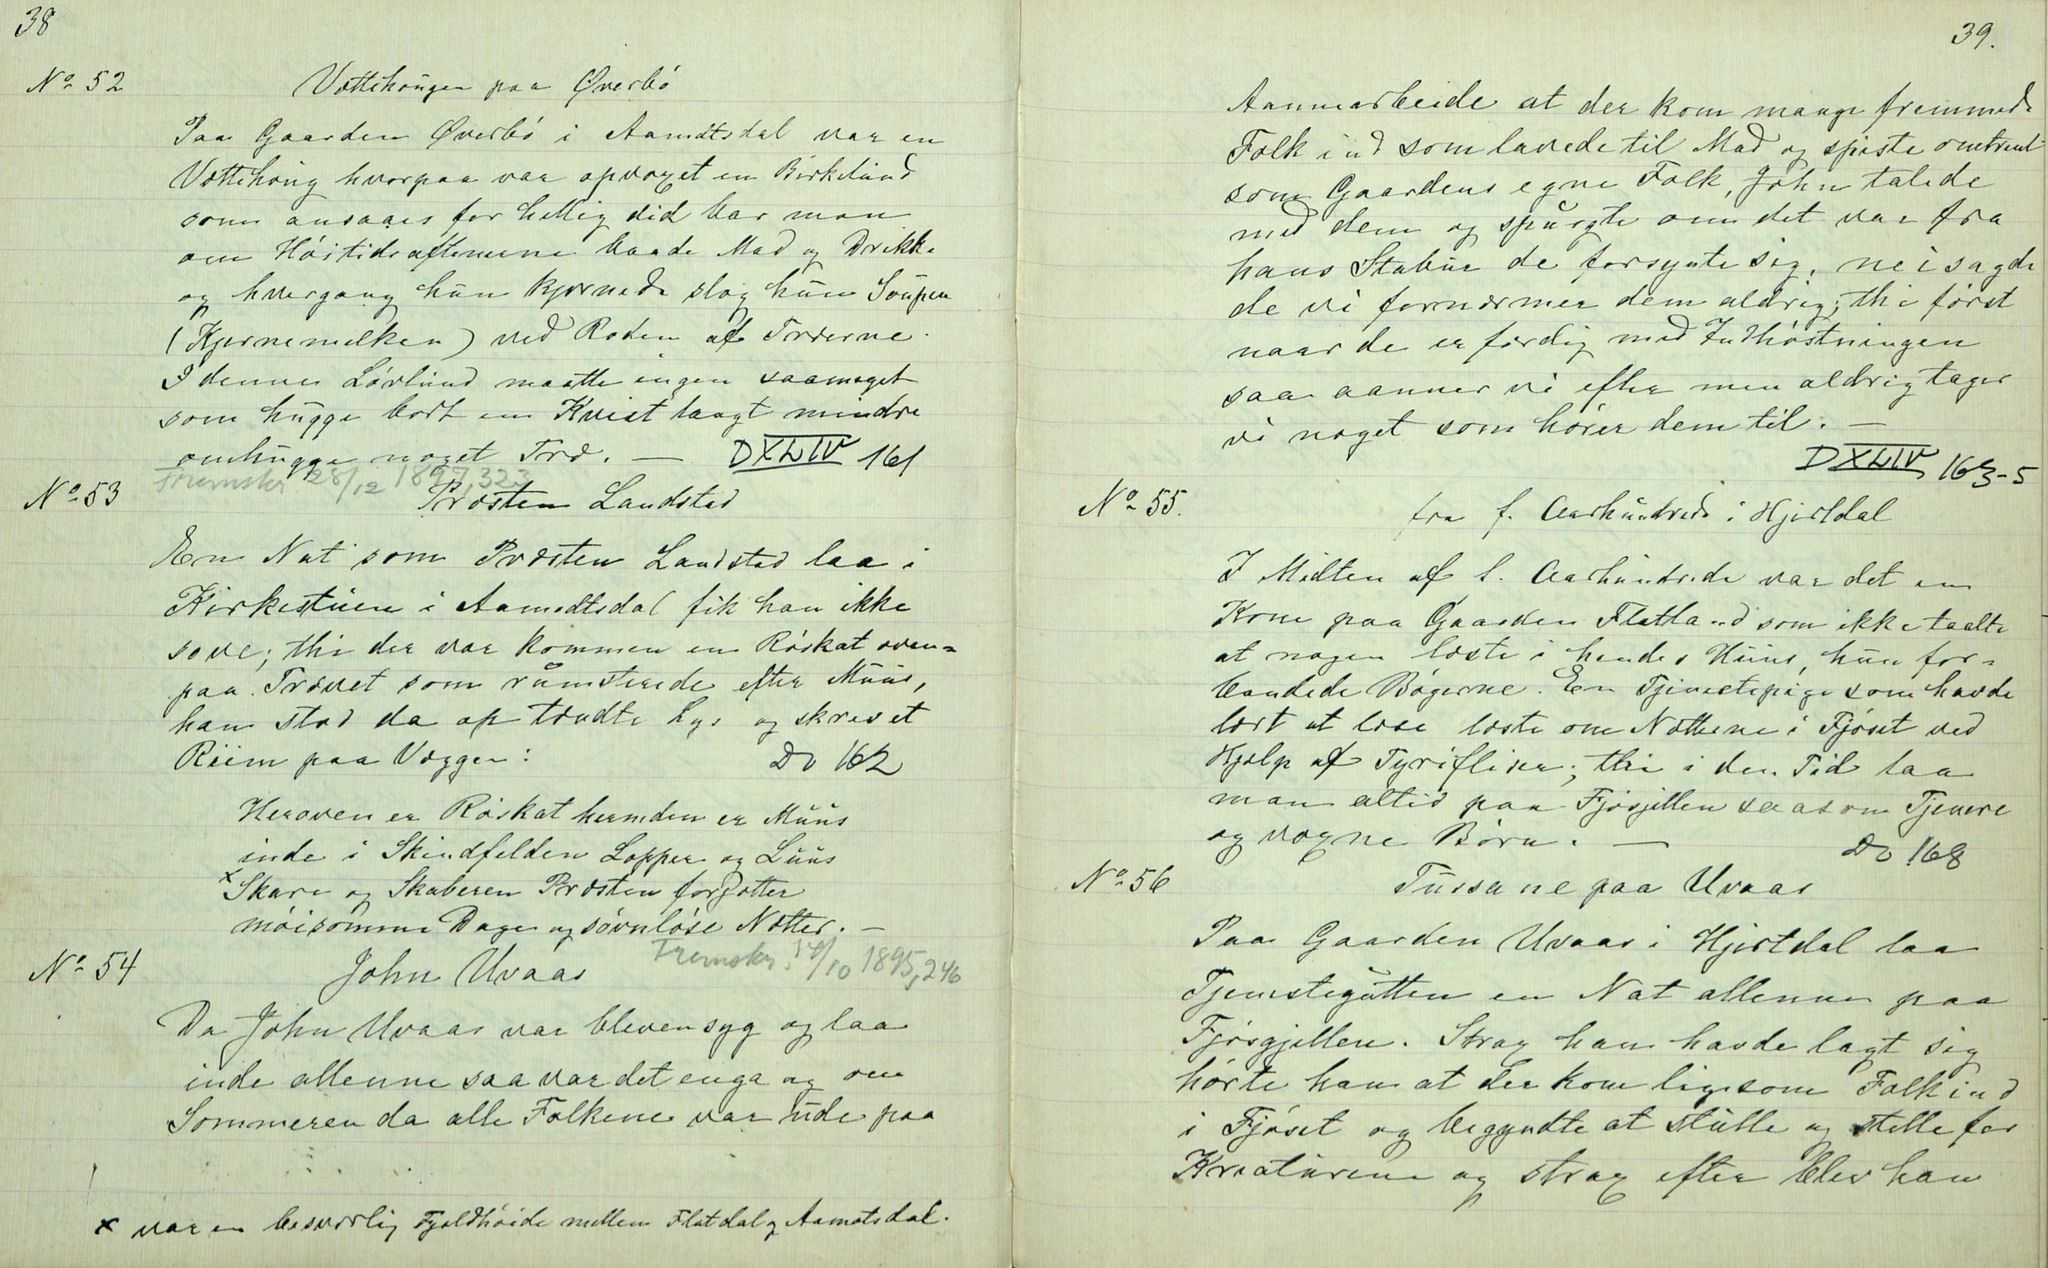 38
No 52 Vættehougen paa Øverbö
Paa Gaarden Øverbö i Aamdtsdal var en
Vættehoug hvorpaa var opvoxet en Birkelund
som ansaaes for hellig did bar man
om Höitidsaftenerne baade Mad og Drikke
og hvergang hun kjernede slog hun Soupen
(Kjernemelken) ved Roden af Træerne.
I denne Lövlund maatte ingen saameget
som hugge bort en Kvist langt mindre
omhugge noget Træ. — DXLIV 161
Fremskr. 28/12 1897, 323
No 53 Præsten Landstad
En Nat som Præsten Landstad laa i
Kirkestuen i Aamodtsdal fik han ikke
sove; thi der var kommen en Röskat oven=
paa Trævet som rumsterede efter Muus,
han stod da op tændte Lys og skrev et
Riim paa Væggen: Do 162
Heroven er Röskat herneden er Muus
inde i Skindfelden Lopper og Luus
x Skare og Skaberen Præsten forjætter
möisomme Dage og sövnlöse Nætter. —
Fremskr. 14/10 1895, 246
No 54 John Uvaas
Da John Uvaas var bleven syg og laa
inde allenne saa var det engang om
Sommeren da alle Folkene var ude paa
x var en besværlig Fjeldhöide mellem Flatdal og Aamotsdal.
39.
Aannarbeide at der kom mange fremmede
Folk ind som lavede til Mad og spiste omtrent
som Gaardens egne Folk, John talede
med dem og spurgte om det var fra
hans Stabur de forsynte sig, nei sagde
de vi fornærmer dem aldrig; thi först
naar de er færdig med Indhöstningen
saa aanner vi efter men aldrig tager
vi noget som hörer dem til. —
DXLIV 163-5
No 55. fra f. Aarhundrede i Hjertdal
I Midten af f. Aarhundrede var det en
Kone paa Gaarden Flatland som ikke taalte
at nogen læste i hendes Huus, hun for=
bandede Bögerne. En Tjenestepige som havde
lært at læse læste om Nætterne i Fjöset ved
Hjælp af Tyrifliser; thi i den Tid laa
man altid paa Fjösjellen saasom Tjenere
og voxne Börn. — Do 168
No 56 Tussane paa Uvaas
Paa Gaarden Uvaas i Hjertdal laa
Tjenestegutten en Nat allenne paa
Fjösgjellen. Strax han havde lagt sig
hörte han at der kom ligesom Folk ind
i Fjöset og begyndte at stulle og stelle for
Kreaturene og strax efter blev han